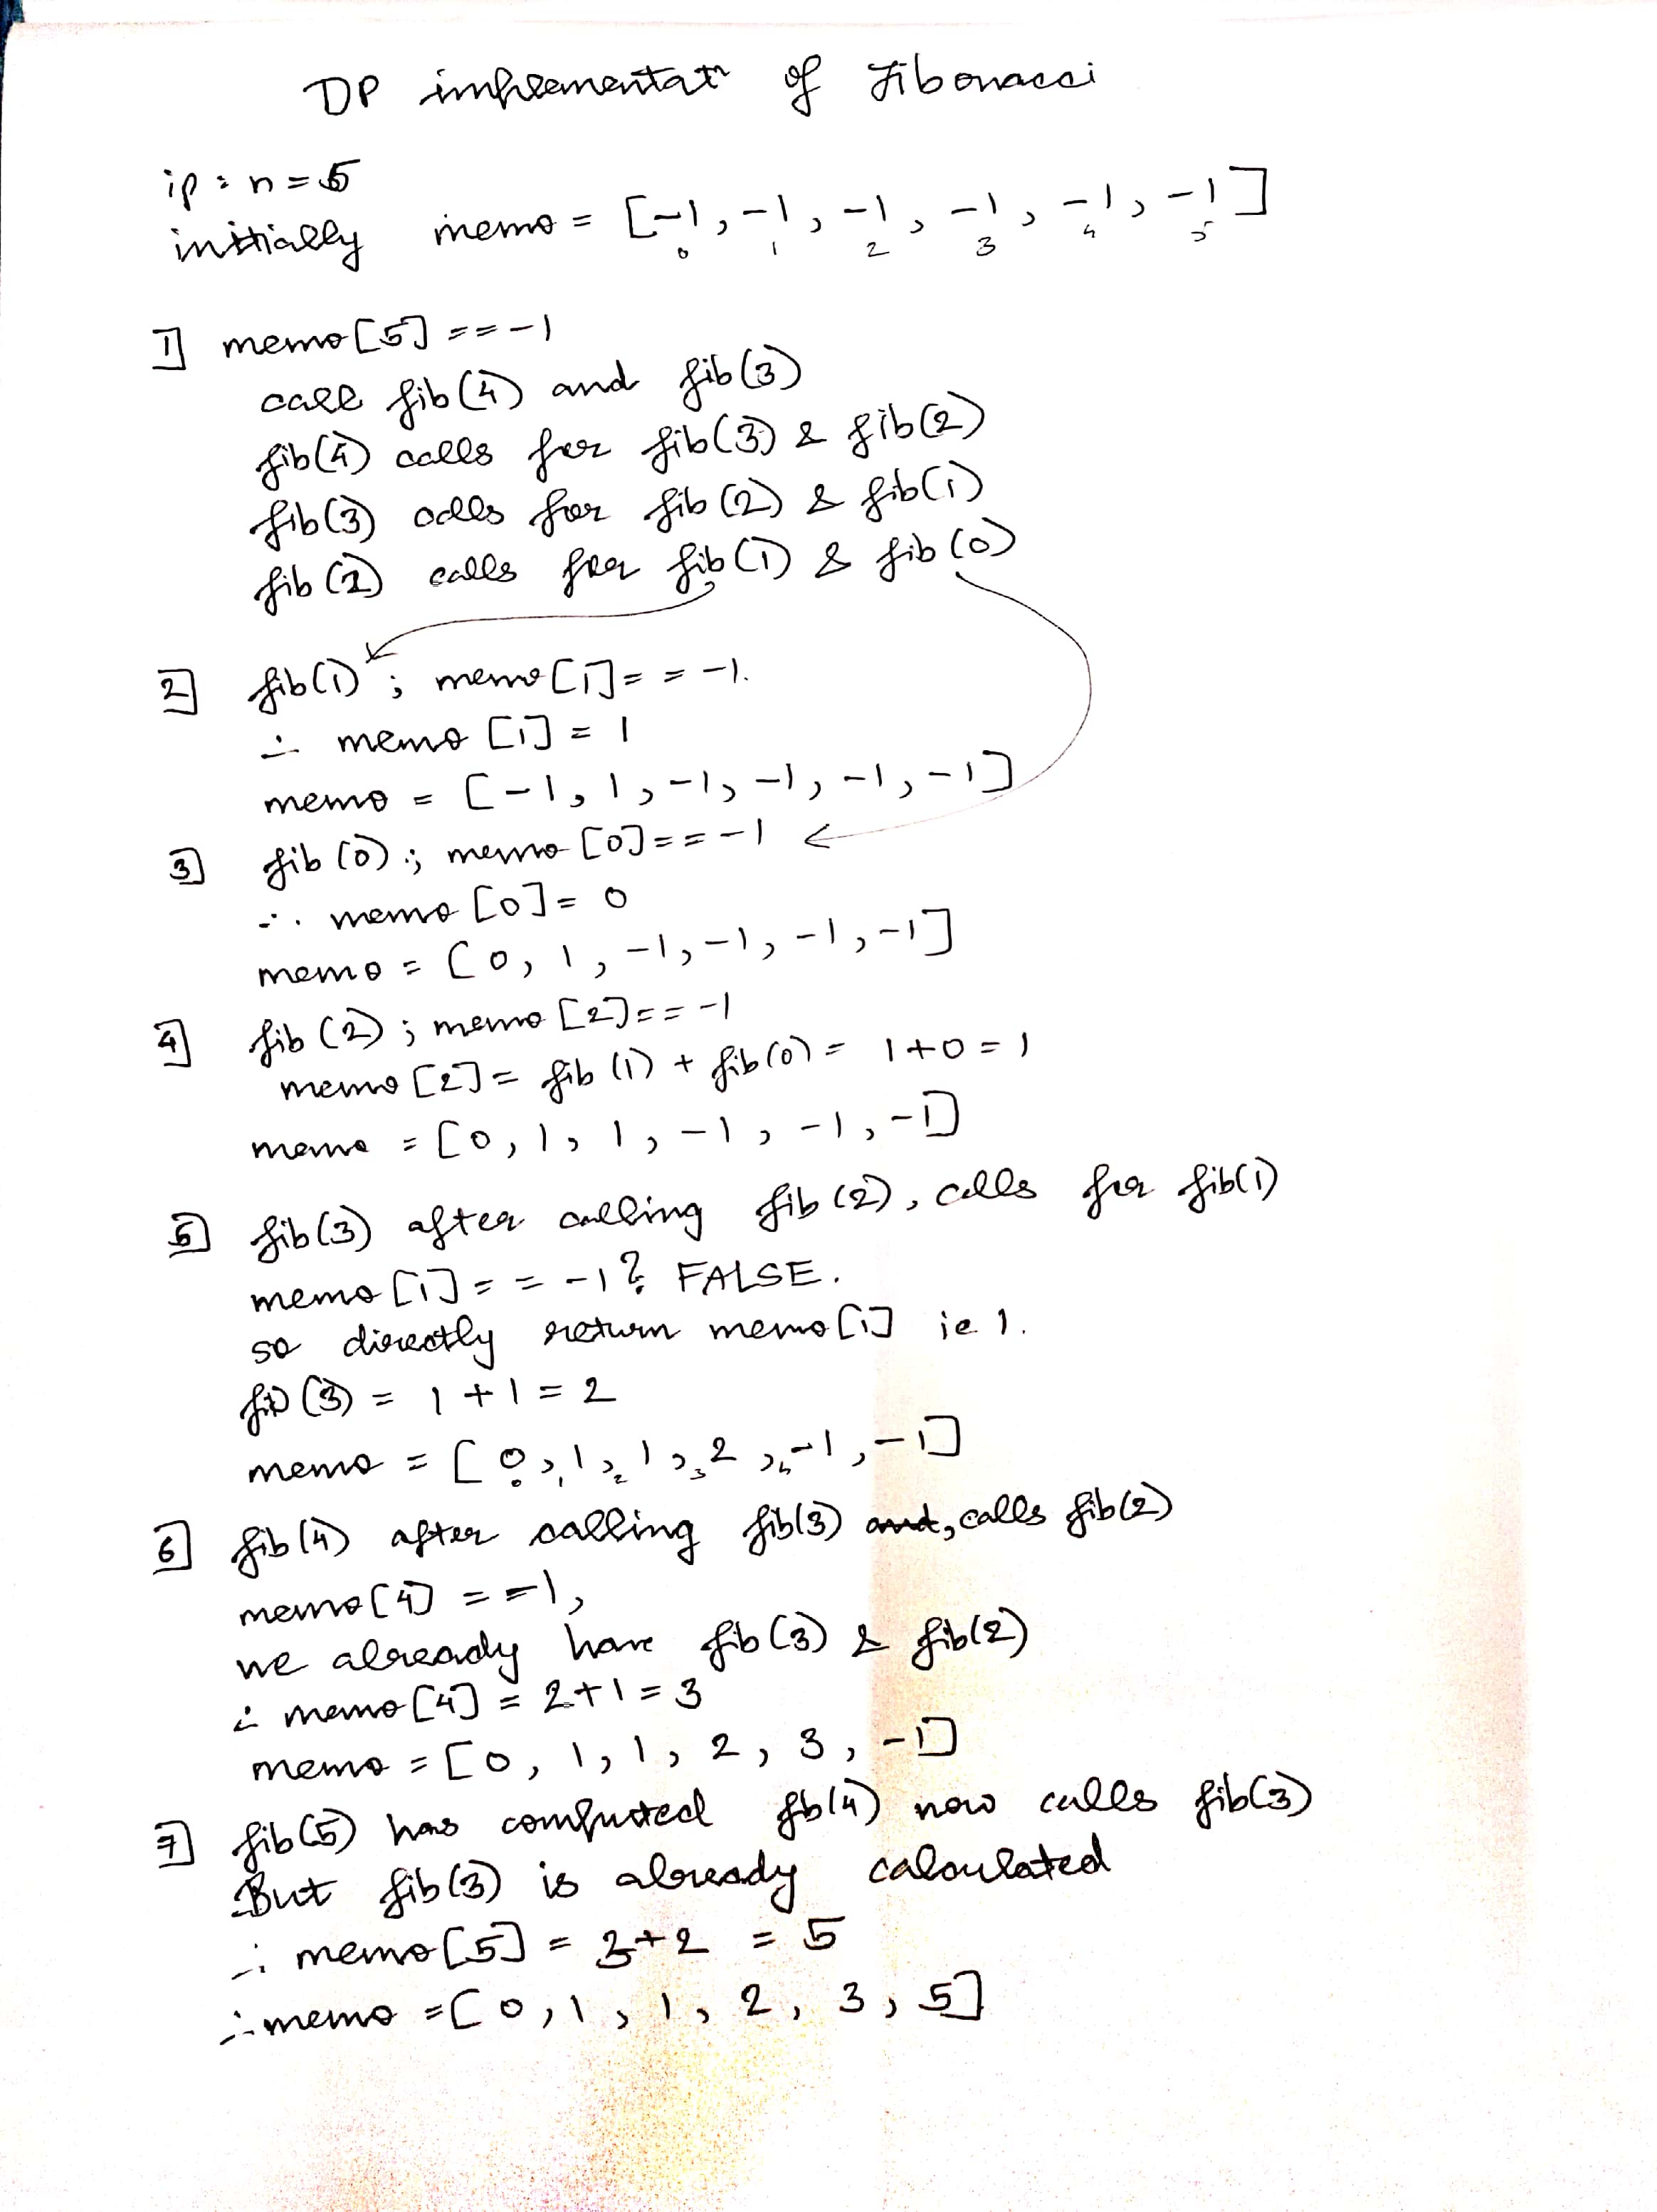 DP implementatn of Fibonacci
ip: n=5
initially memo = [-1, -1, -1, -1, -1, -1]
0 1 2 3 4 5
1] memo[5] == -1
call fib(4) and fib(3)
fib(4) calls for fib(3) & fib(2)
fib(3) calls for fib(2) & fib(1)
fib(2) calls for fib(1) & fib(0)
2] fib(1); memo[1] == -1.
∴ memo[1] = 1
memo = [-1, 1, -1, -1, -1, -1]
3] fib(0); memo[0] == -1
∴ memo[0] = 0
memo = [0, 1, -1, -1, -1, -1]
4] fib(2); memo[2] == -1
memo[2] = fib(1) + fib(0) = 1+0 = 1
memo = [0, 1, 1, -1, -1, -1]
5] fib(3) after calling fib(2), calls for fib(1)
memo[1] == -1? FALSE.
so directly return memo[1] ie 1.
fib(3) = 1+1 = 2
memo = [0, 1, 1, 2, -1, -1]
0 1 2 3 4
6] fib(4) after calling fib(3) and, calls fib(2)
memo[4] == -1,
we already have fib(3) & fib(2)
∴ memo[4] = 2+1 = 3
memo = [0, 1, 1, 2, 3, -1]
7] fib(5) has computed fib(4) now calls fib(3)
But fib(3) is already calculated
∴ memo[5] = 3+2 = 5
∴ memo = [0, 1, 1, 2, 3, 5]